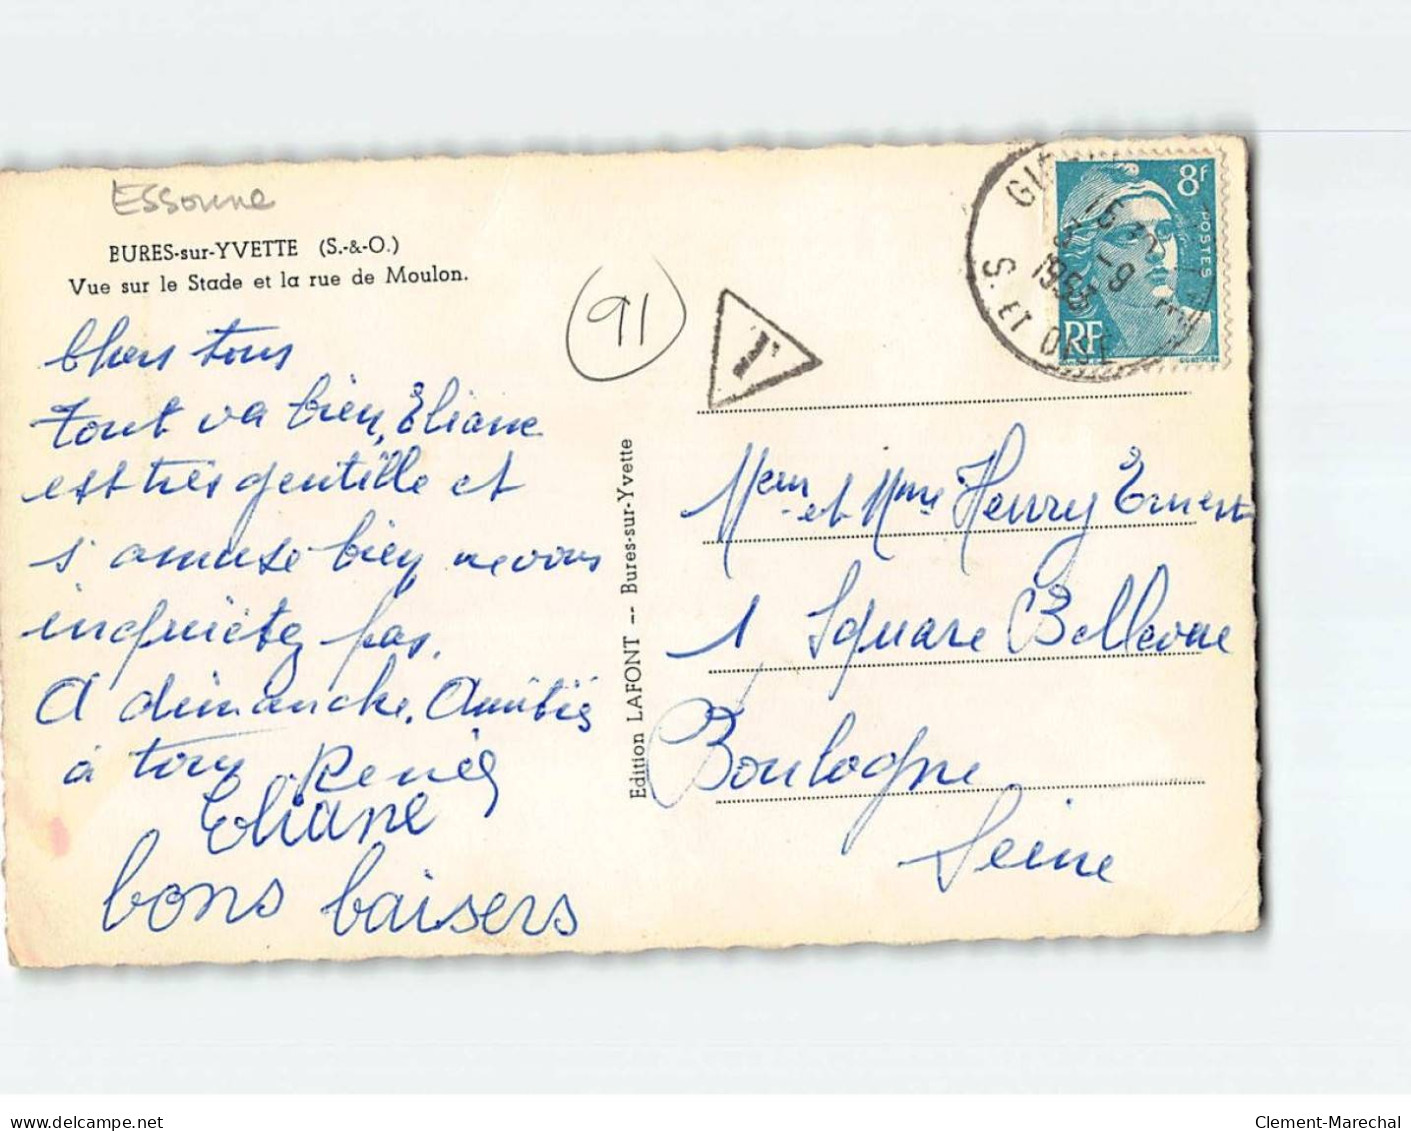 Essonne
BURES-sur-YVETTE (S.-&-O.)
Vue sur le Stade et la rue de Moulon.
91
T
8F
POSTES
RF
S. ET OISE
15
5 -9
Chers tous
tout va bien, Eliane
est très gentille et
s'amuse bien ne vous
inquiétez pas.
A dimanche. Amitiés
à tous Renée
Eliane
bons baisers
Edition LAFONT -- Bures-sur-Yvette
et Mme Henry Ernest
1 Square Bellevue
Boulogne
Seine
delcampe.net
Clement-Marechal